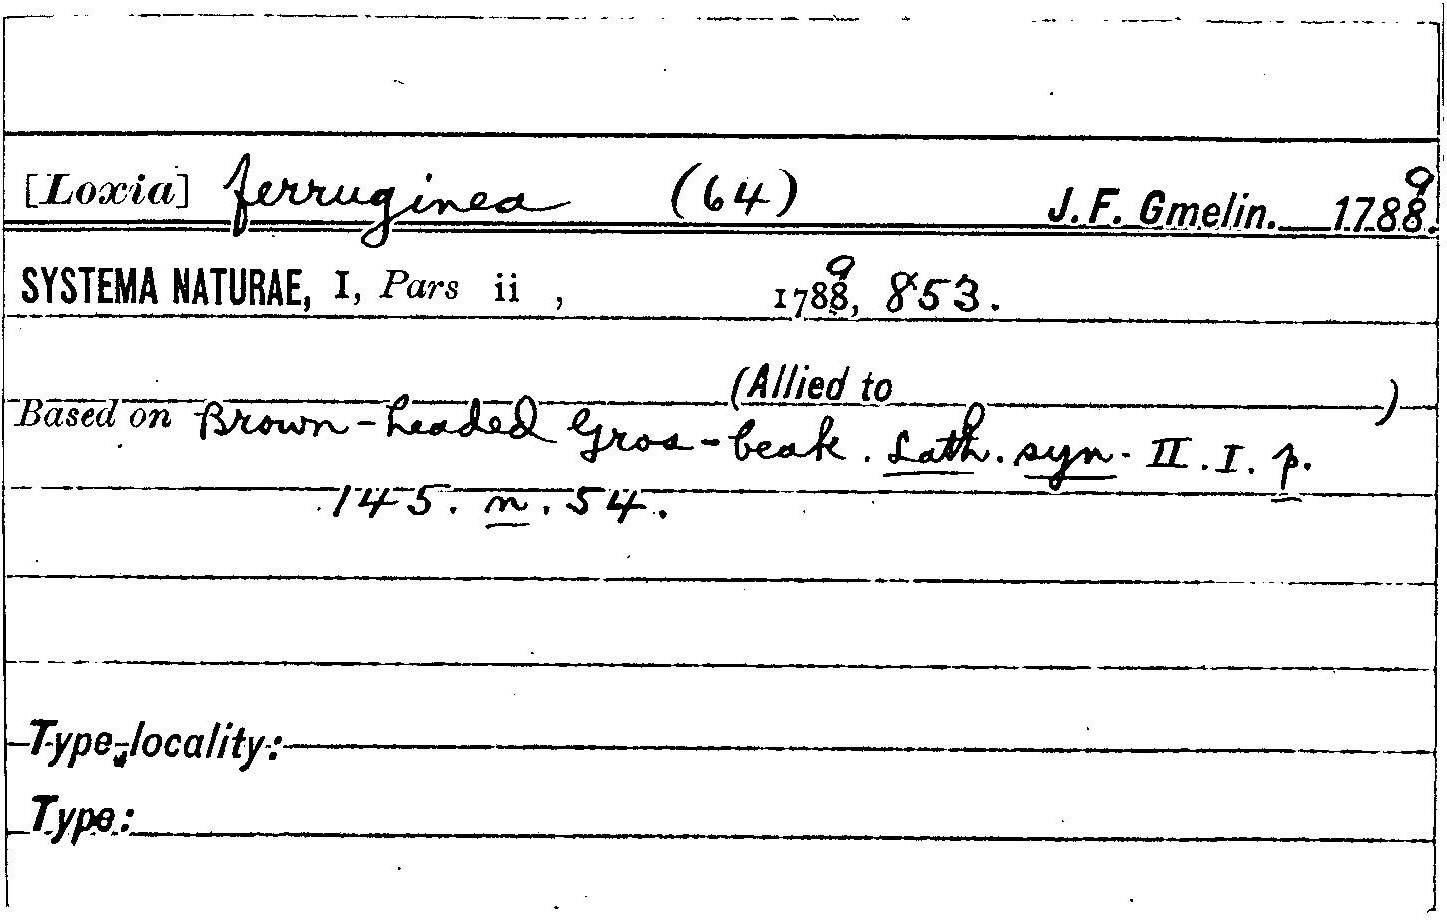 [Loxia] ferruginea (64) J. F. Gmelin. 17889.
SYSTEMA NATURAE, I, Pars ii , 17889, 853.
(Allied to )
Based on Brown-headed Gros-beak. Lath. syn. II. I. p.
145. n. 54.
Type locality:
Type: